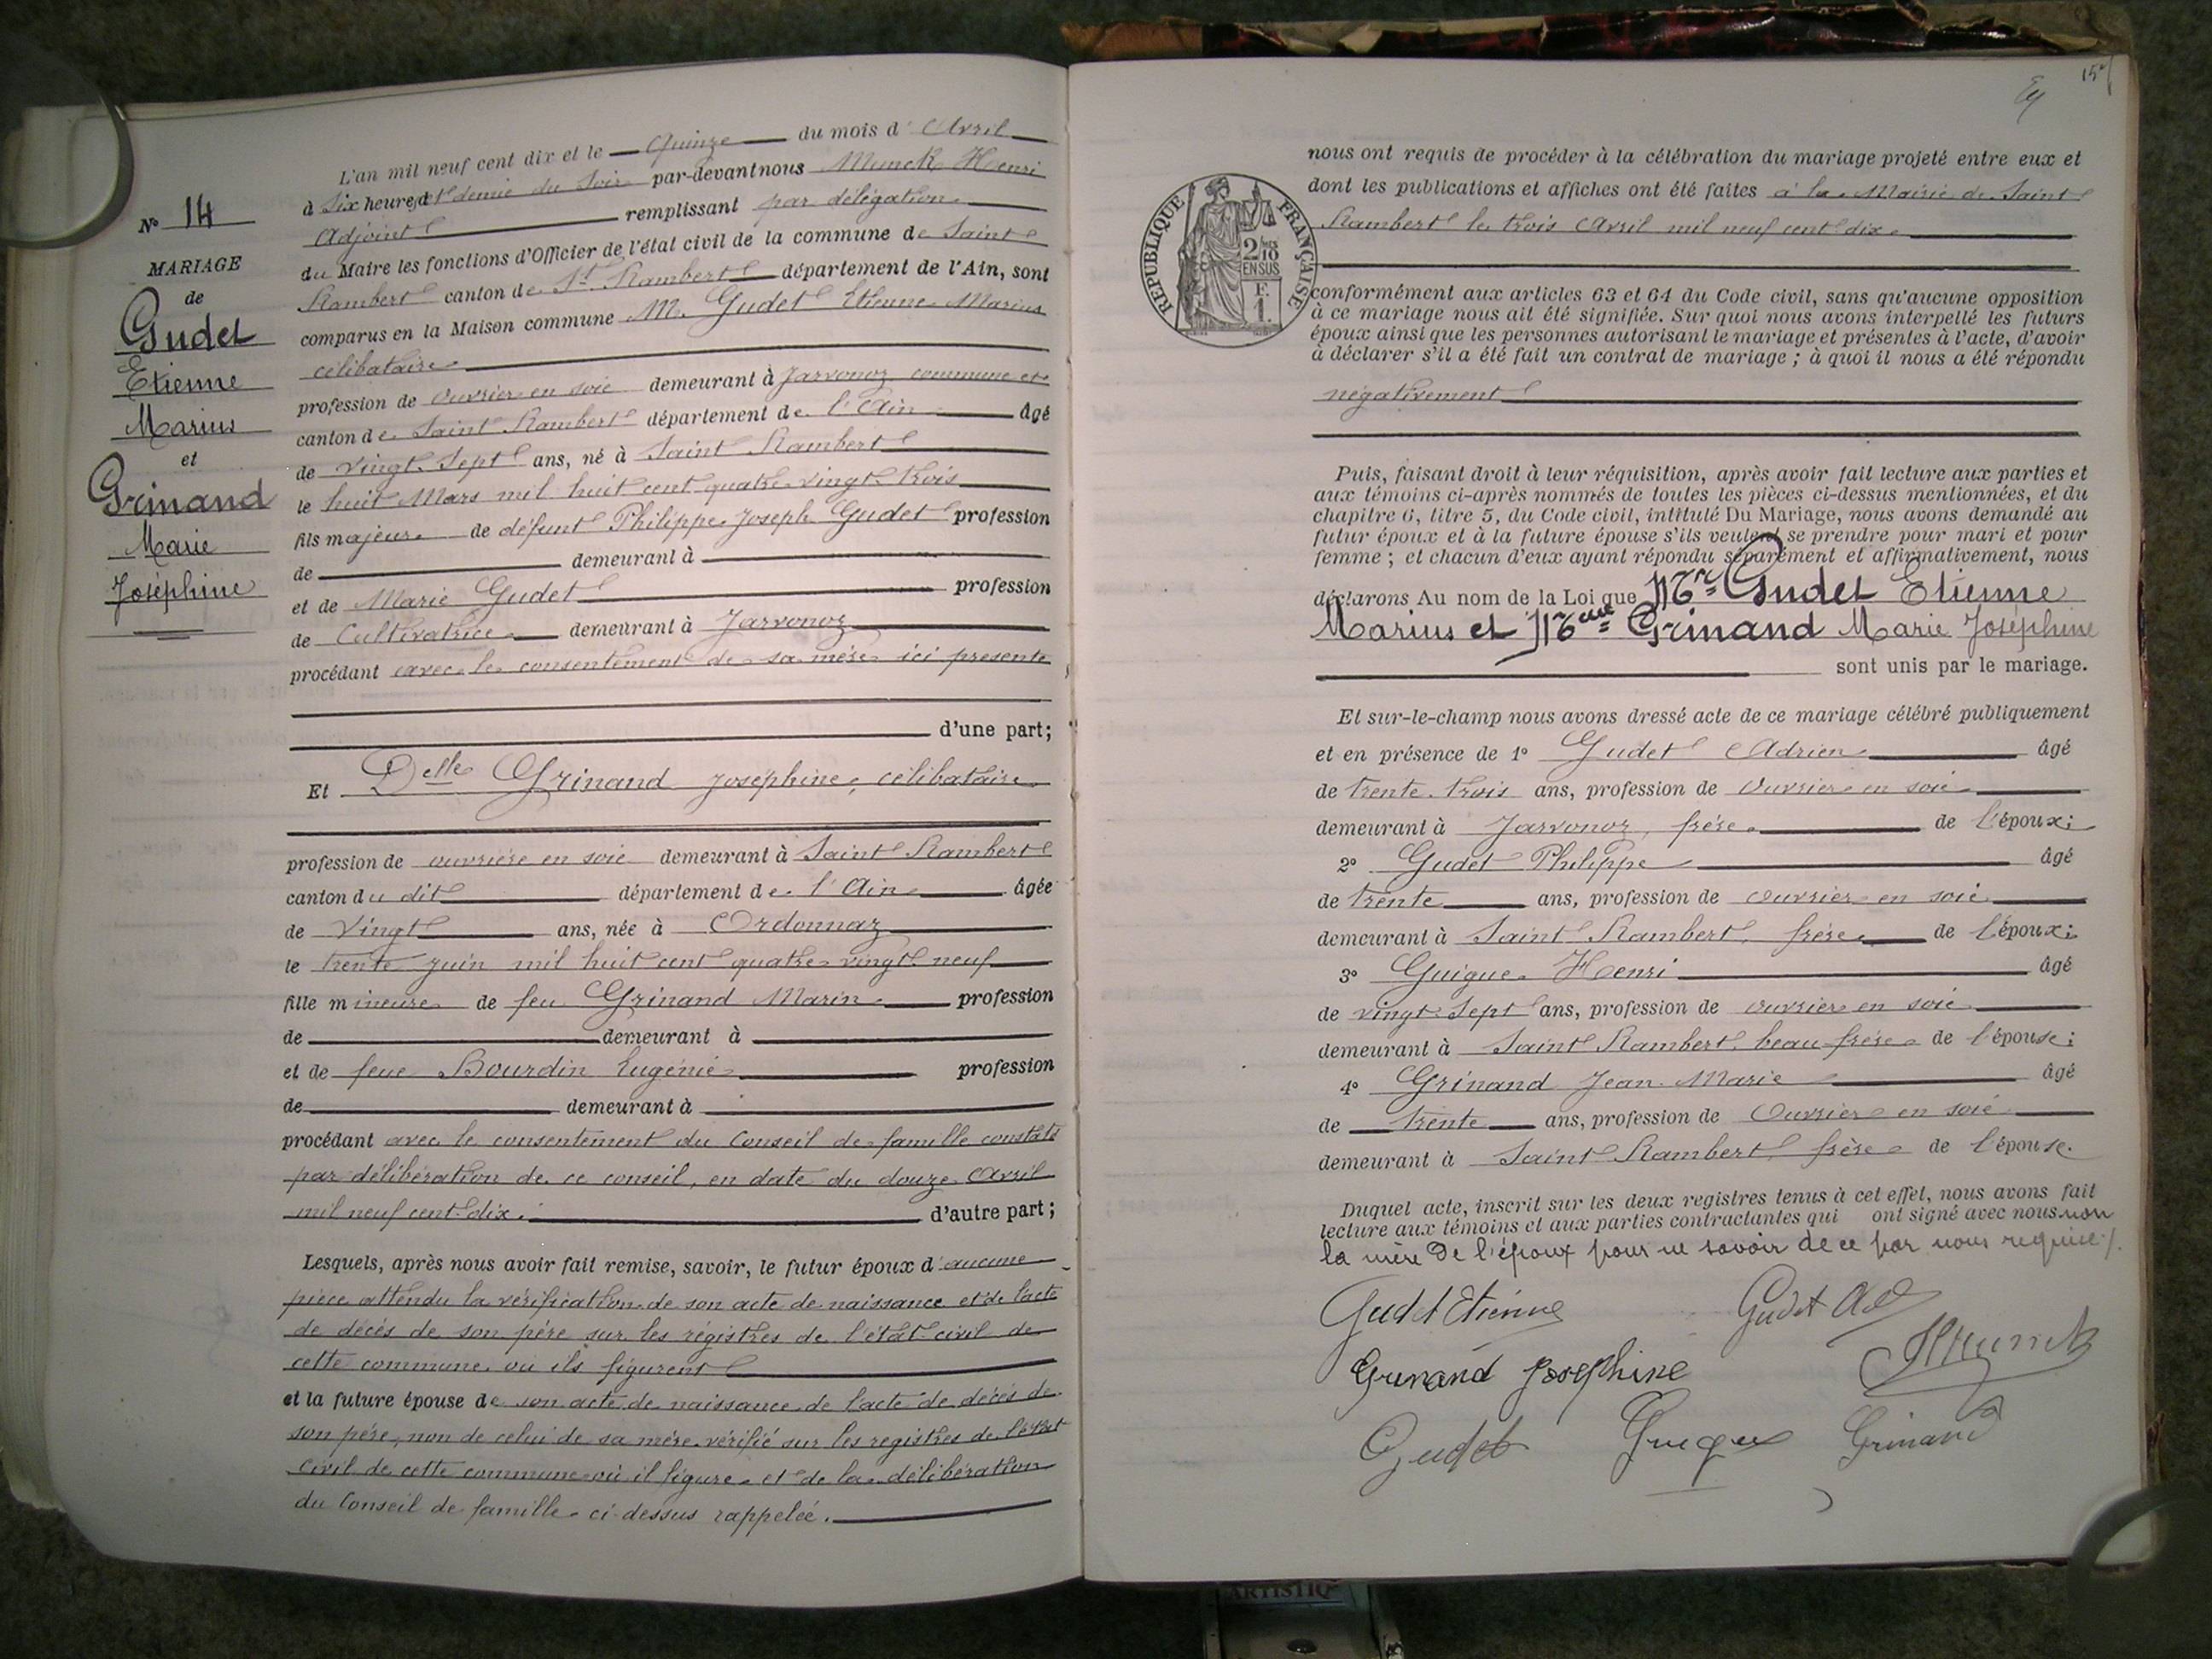 N° 14
MARIAGE
de
Gudet
Etienne
Marius
et
Grinand
Marie
Joséphine
L'an mil neuf cent dix et le quinze du mois d'Avril
à six heures et demie du soir par-devant nous Munck Henri
Adjoint remplissant par délégation
du Maire les fonctions d'Officier de l'état civil de la commune de Saint
Rambert canton de St Rambert département de l'Ain, sont
comparus en la Maison commune M. Gudet Etienne Marius
célibataire
profession de ouvrier en soie demeurant à Javornoz commune et
canton de Saint Rambert département de l'Ain âgé
de vingt sept ans, né à Saint Rambert
le huit Mars mil huit cent quatre vingt trois
fils majeur de défunt Philippe Joseph Gudet profession
de demeurant à
et de Marie Gudet profession
de Cultivatrice demeurant à Javornoz
procédant avec le consentement de sa mère ici présente
d'une part;
Et Delle Grinand Joséphine, célibataire
profession de ouvrière en soie demeurant à Saint Rambert
canton du dit département de l'Ain âgée
de vingt ans, née à Ordonnaz
le trente juin mil huit cent quatre vingt neuf
fille mineure de feu Grinand Marin profession
de demeurant à
et de feue Bourdin Eugénie profession
de demeurant à
procédant avec le consentement du Conseil de famille constaté
par délibération de ce conseil, en date du douze Avril
mil neuf cent dix. d'autre part;
Lesquels, après nous avoir fait remise, savoir, le futur époux d'aucune
pièce attendu la vérification de son acte de naissance et de l'acte
de décès de son père sur les régistres de l'état civil de
cette commune où ils figurent
et la future épouse de son acte de naissance de l'acte de décès de
son père, non de celui de sa mère vérifié sur les registres de l'état
civil de cette commune où il figure et de la délibération
du Conseil de famille ci-dessus rappelée.
15
RÉPUBLIQUE FRANÇAISE
2/10
EN SUS
F.
1.
nous ont requis de procéder à la célébration du mariage projeté entre eux et
dont les publications et affiches ont été faites à la Mairie de Saint
Rambert le trois Avril mil neuf cent dix
conformément aux articles 63 et 64 du Code civil, sans qu'aucune opposition
à ce mariage nous ait été signifiée. Sur quoi nous avons interpellé les futurs
époux ainsi que les personnes autorisant le mariage et présentes à l'acte, d'avoir
à déclarer s'il a été fait un contrat de mariage ; à quoi il nous a été répondu
négativement
Puis, faisant droit à leur réquisition, après avoir fait lecture aux parties et
aux témoins ci-après nommés de toutes les pièces ci-dessus mentionnées, et du
chapitre 6, titre 5, du Code civil, intitulé Du Mariage, nous avons demandé au
futur époux et à la future épouse s'ils veulent se prendre pour mari et pour
femme ; et chacun d'eux ayant répondu séparément et affirmativement, nous
déclarons Au nom de la Loi que Mr Gudet Etienne
Marius et Melle Grinand Marie Joséphine
sont unis par le mariage.
Et sur-le-champ nous avons dressé acte de ce mariage célébré publiquement
et en présence de 1° Gudet Adrien âgé
de trente trois ans, profession de ouvrier en soie
demeurant à Javornoz, frère de l'époux;
2° Gudet Philippe âgé
de trente ans, profession de ouvrier en soie
demeurant à Saint Rambert, frère de l'époux;
3° Guigue Henri âgé
de vingt sept ans, profession de ouvrier en soie
demeurant à Saint Rambert, beau-frère de l'épouse;
4° Grinand Jean Marie âgé
de trente ans, profession de Ouvrier en soie
demeurant à Saint Rambert frère de l'épouse.
Duquel acte, inscrit sur les deux registres tenus à cet effet, nous avons fait
lecture aux témoins et aux parties contractantes qui ont signé avec nous non
la mère de l'époux pour ne savoir de ce par nous requise
Gudet Etienne Gudet Ad
Grinand Josephine HMunck
Gudet Guigue Grinand
ARTISTIQ